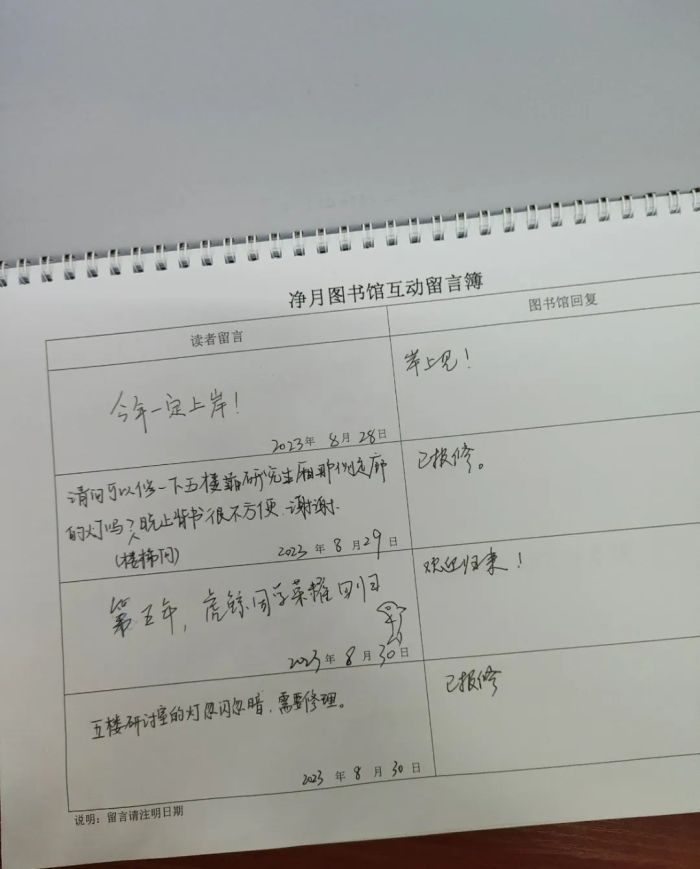 净月图书馆互动留言簿
读者留言
图书馆回复
今年一定上岸!
2023年 8月 28日
岸上见!
请问可以修一下五楼靠研究生厢那侧走廊
的灯吗?晚上背书很不方便.谢谢.
(楼梯间)
2023年 8月29日
已报修。
第五年,虎鲸同学荣耀回归
2023年 8月 30日
欢迎归来!
五楼研讨室的灯忽闪忽暗,需要修理。
2023年 8月 30日
已报修
说明:留言请注明日期